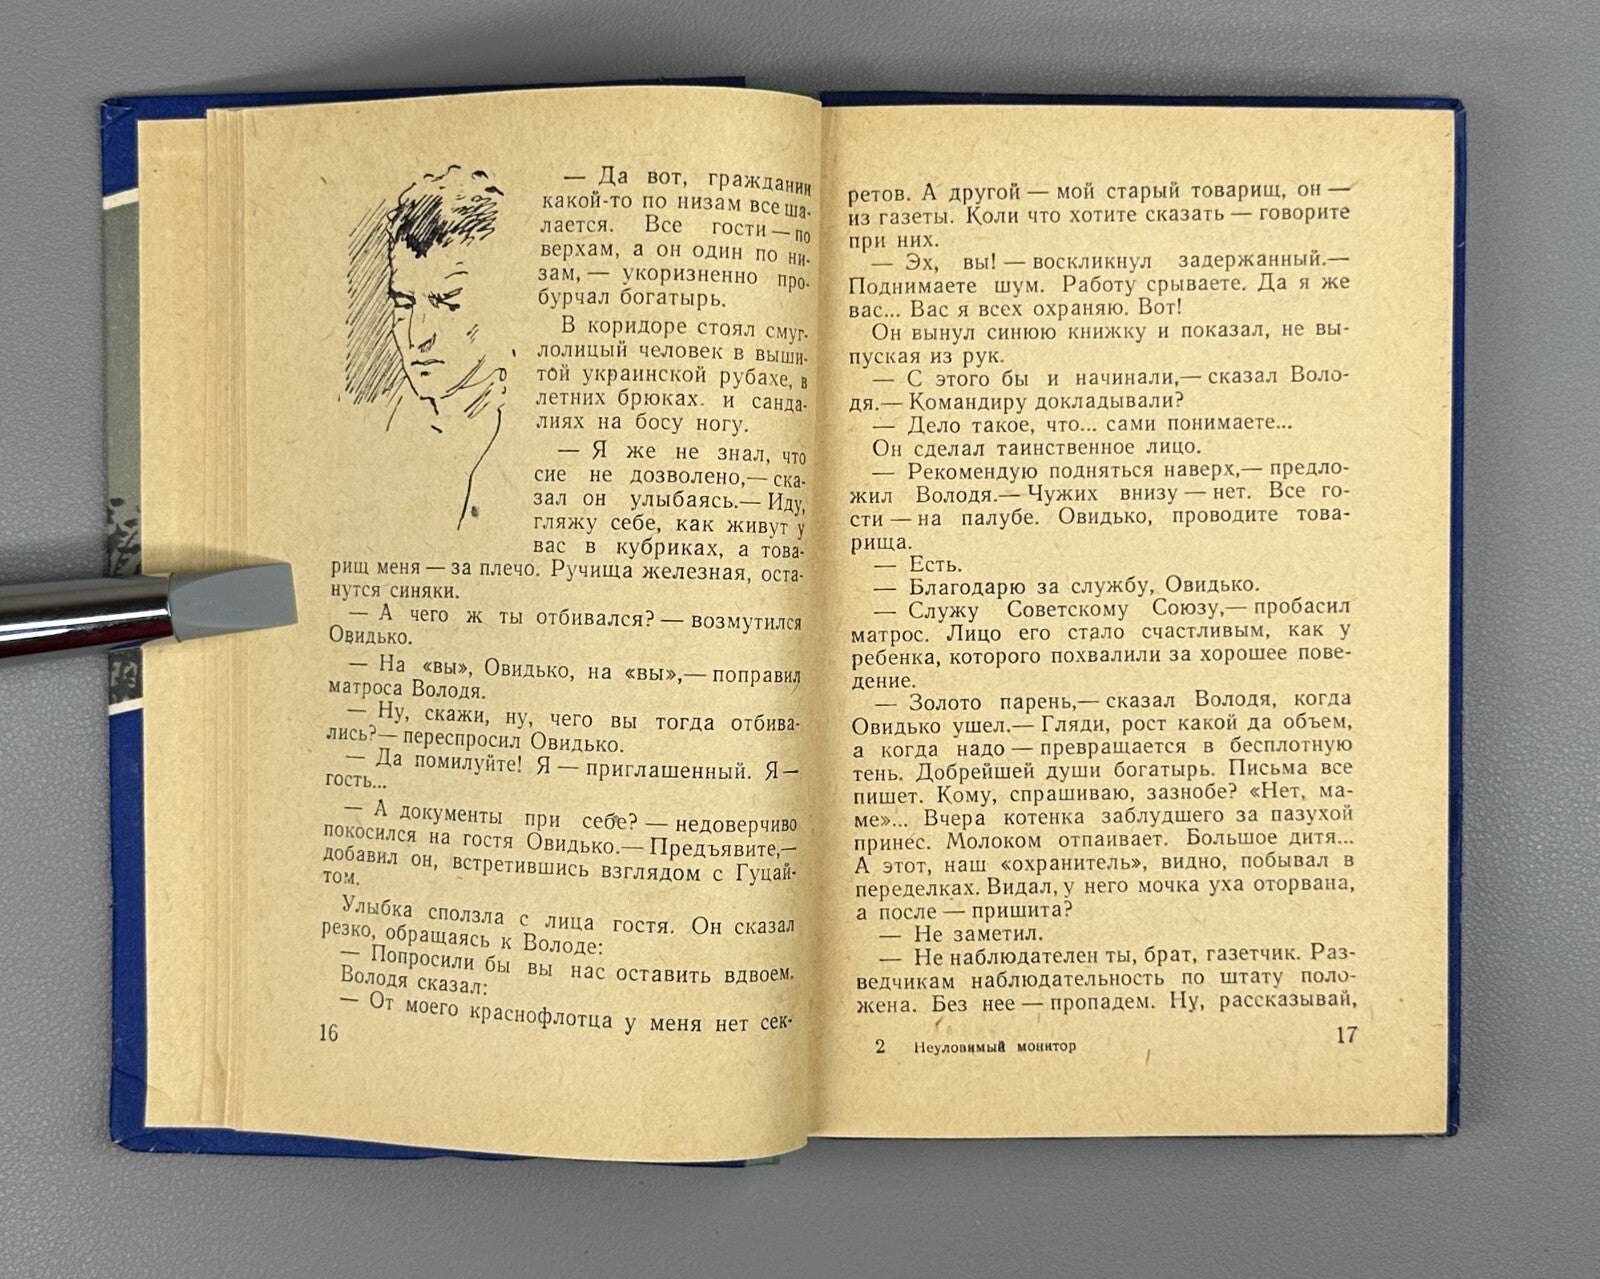 — Да вот, гражданин
какой-то по низам все ша-
лается. Все гости — по
верхам, а он один по ни-
зам, — укоризненно про-
бурчал богатырь.
В коридоре стоял смуг-
лолицый человек в выши-
той украинской рубахе, в
летних брюках. и санда-
лиях на босу ногу.
— Я же не знал, что
сие не дозволено,— ска-
зал он улыбаясь.— Иду,
гляжу себе, как живут у
вас в кубриках, а това-
рищ меня — за плечо. Ручища железная, оста-
нутся синяки.
— А чего ж ты отбивался? — возмутился
Овидько.
— На «вы», Овидько, на «вы»,— поправил
матроса Володя.
— Ну, скажи, ну, чего вы тогда отбива-
лись?— переспросил Овидько.
— Да помилуйте! Я — приглашенный. Я —
гость...
— А документы при себе? — недоверчиво
покосился на гостя Овидько.— Предъявите,—
добавил он, встретившись взглядом с Гуцай-
том.
Улыбка сползла с лица гостя. Он сказал
резко, обращаясь к Володе:
— Попросили бы вы нас оставить вдвоем.
Володя сказал:
— От моего краснофлотца у меня нет сек-
16
ретов. А другой — мой старый товарищ, он —
из газеты. Коли что хотите сказать — говорите
при них.
— Эх, вы! — воскликнул задержанный.—
Поднимаете шум. Работу срываете. Да я же
вас... Вас я всех охраняю. Вот!
Он вынул синюю книжку и показал, не вы-
пуская из рук.
— С этого бы и начинали,— сказал Воло-
дя.— Командиру докладывали?
— Дело такое, что... сами понимаете...
Он сделал таинственное лицо.
— Рекомендую подняться наверх,— предло-
жил Володя.— Чужих внизу — нет. Все го-
сти — на палубе. Овидько, проводите това-
рища.
— Есть.
— Благодарю за службу, Овидько.
— Служу Советскому Союзу,— пробасил
матрос. Лицо его стало счастливым, как у
ребенка, которого похвалили за хорошее пове-
дение.
— Золото парень,— сказал Володя, когда
Овидько ушел.— Гляди, рост какой да объем,
а когда надо — превращается в бесплотную
тень. Добрейшей души богатырь. Письма все
пишет. Кому, спрашиваю, зазнобе? «Нет, ма-
ме»... Вчера котенка заблудшего за пазухой
принес. Молоком отпаивает. Большое дитя...
А этот, наш «охранитель», видно, побывал в
переделках. Видал, у него мочка уха оторвана,
а после — пришита?
— Не заметил.
— Не наблюдателен ты, брат, газетчик. Раз-
ведчикам наблюдательность по штату поло-
жена. Без нее — пропадем. Ну, рассказывай,
2 Неуловимый монитор
17